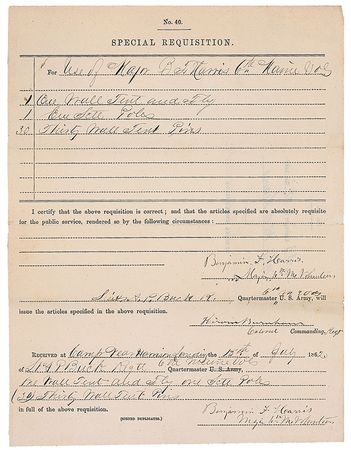 No. 40.
SPECIAL REQUISITION.
For Use of Major B F Harris 6th Maine Vols
1 One Wall Tent and Fly
1 One Sett Poles
30 Thirty Wall Tent Pins
I certify that the above requisition is correct; and that the articles specified are absolutely requisite
for the public service, rendered so by the following circumstances:
Benjamin F. Harris
Major 6th Me Volunteers
Buck Quartermaster U. S. Army, will
issue the articles specified in the above requisition.
Hiram Burnham
Colonel Commanding Regt
RECEIVED at Camp Near Harrisons Landing the of July 1862,
of Buck 6th Maine Vols Quartermaster U. S. Army,
One Wall Tent and Fly one Sett Poles
(30) Thirty Wall Tent Pins
in full of the above requisition.
(SIGNED DUPLICATES.)
Benjamin F Harris
Major 6th Me Volunteers